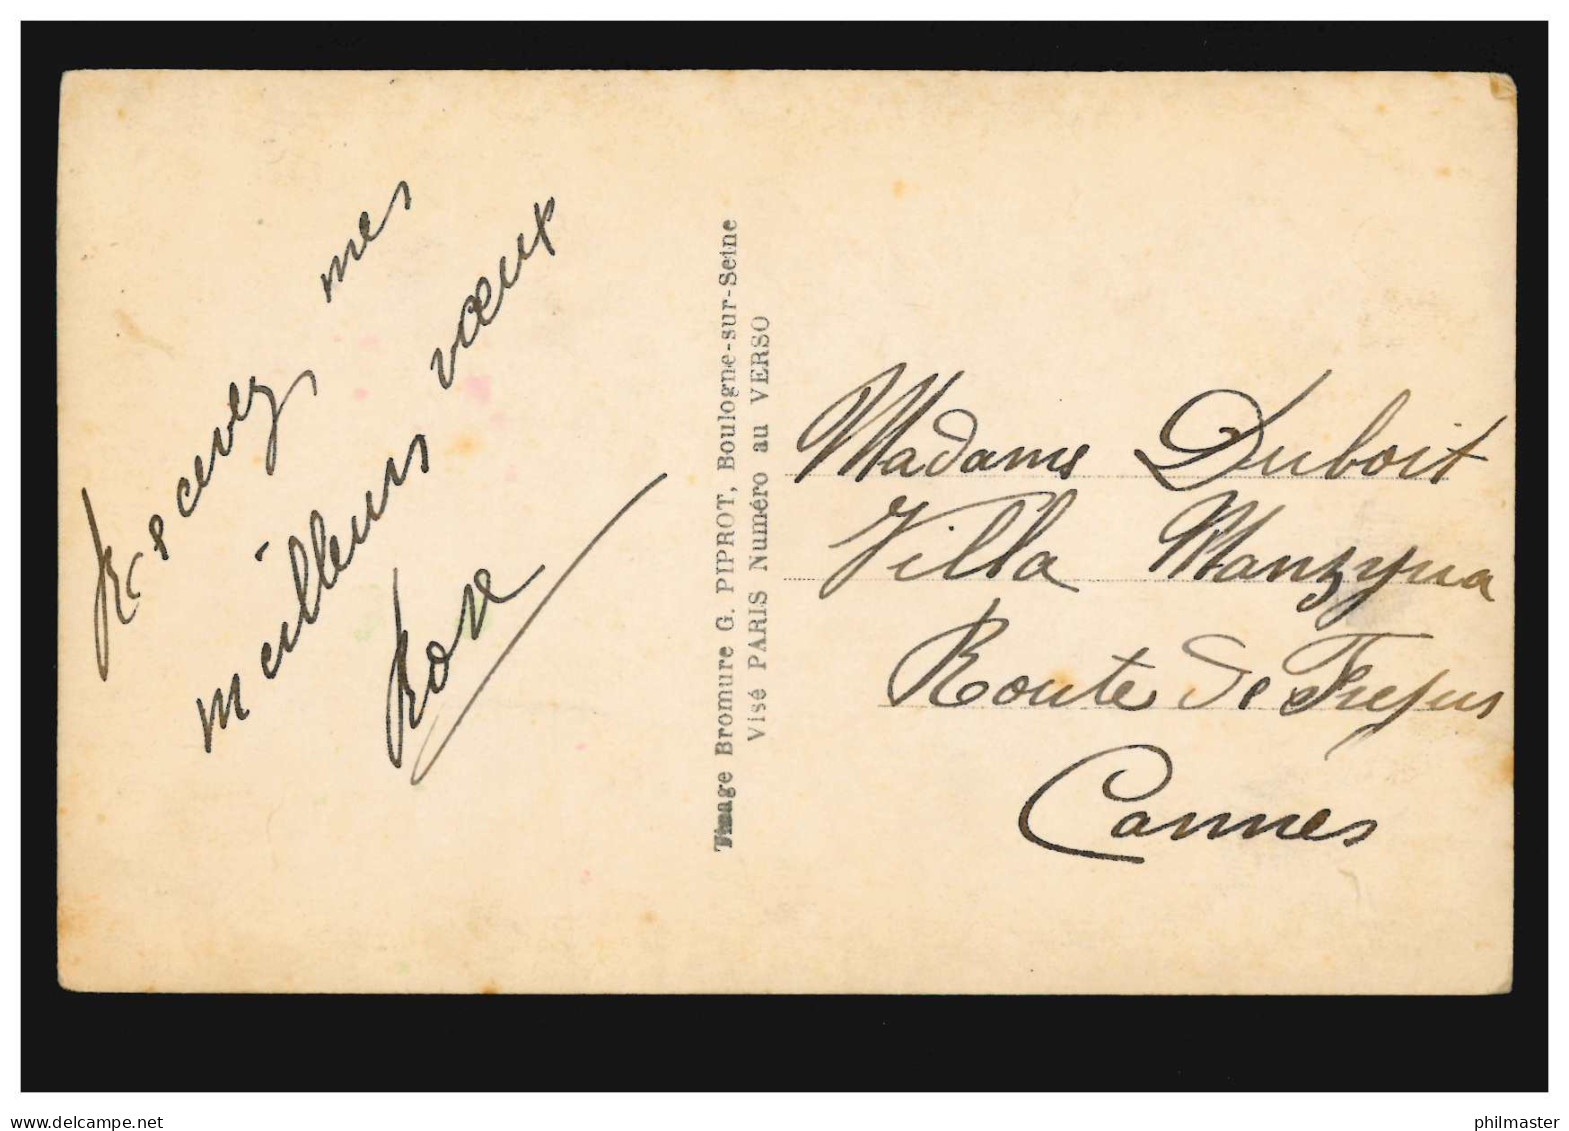 Recevez mes
meilleurs vœux
Rose
Tirage Bromure G. PIPROT, Boulogne-sur-Seine
Visé PARIS Numéro au VERSO
Madame Duboit
Villa
Route de Frejus
Cannes
www.delcampe.net
philmaster